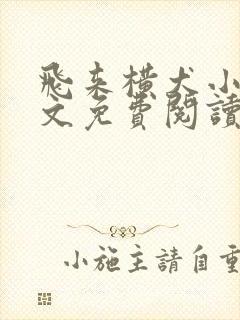 飛来橫犬小
文免費閱讀
小施主請自重